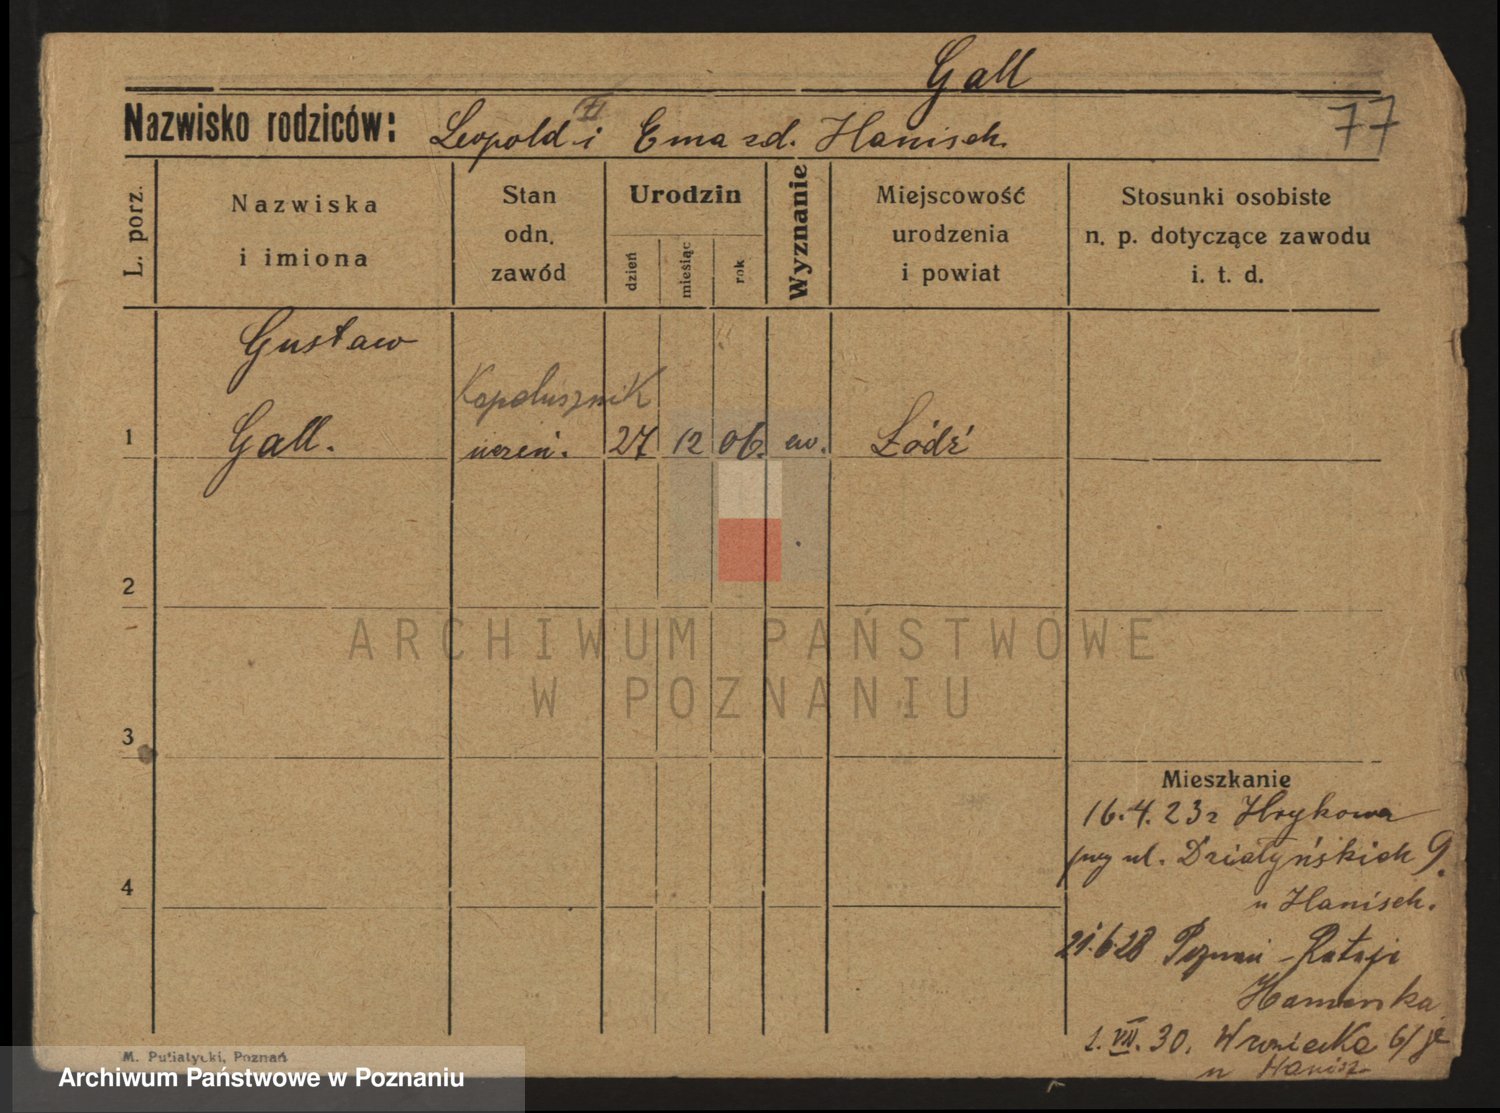 Gall
77
Nazwisko rodziców: Leopold i Ema zd. Hanisch.
L. porz.
Nazwiska
i imiona
Stan
odn.
zawód
Urodzin
dzień
miesiąc
rok
Wyznanie
Miejscowość
urodzenia
i powiat
Stosunki osobiste
n. p. dotyczące zawodu
i. t. d.
Gustaw
Kapelusznik
1 Gall. uczeń. 27 12 06. ew. Łódź
2
ARCHIWUM PAŃSTWOWE
W POZNANIU
3
Mieszkanie
16.4.23 r
przy ul. Działyńskich 9.
u Hanisch.
4
21.6.28 Poznań - Rataje
1. VII. 30. Wroniecka 6/
u Hanisz
M. Putiatycki, Poznań
Archiwum Państwowe w Poznaniu